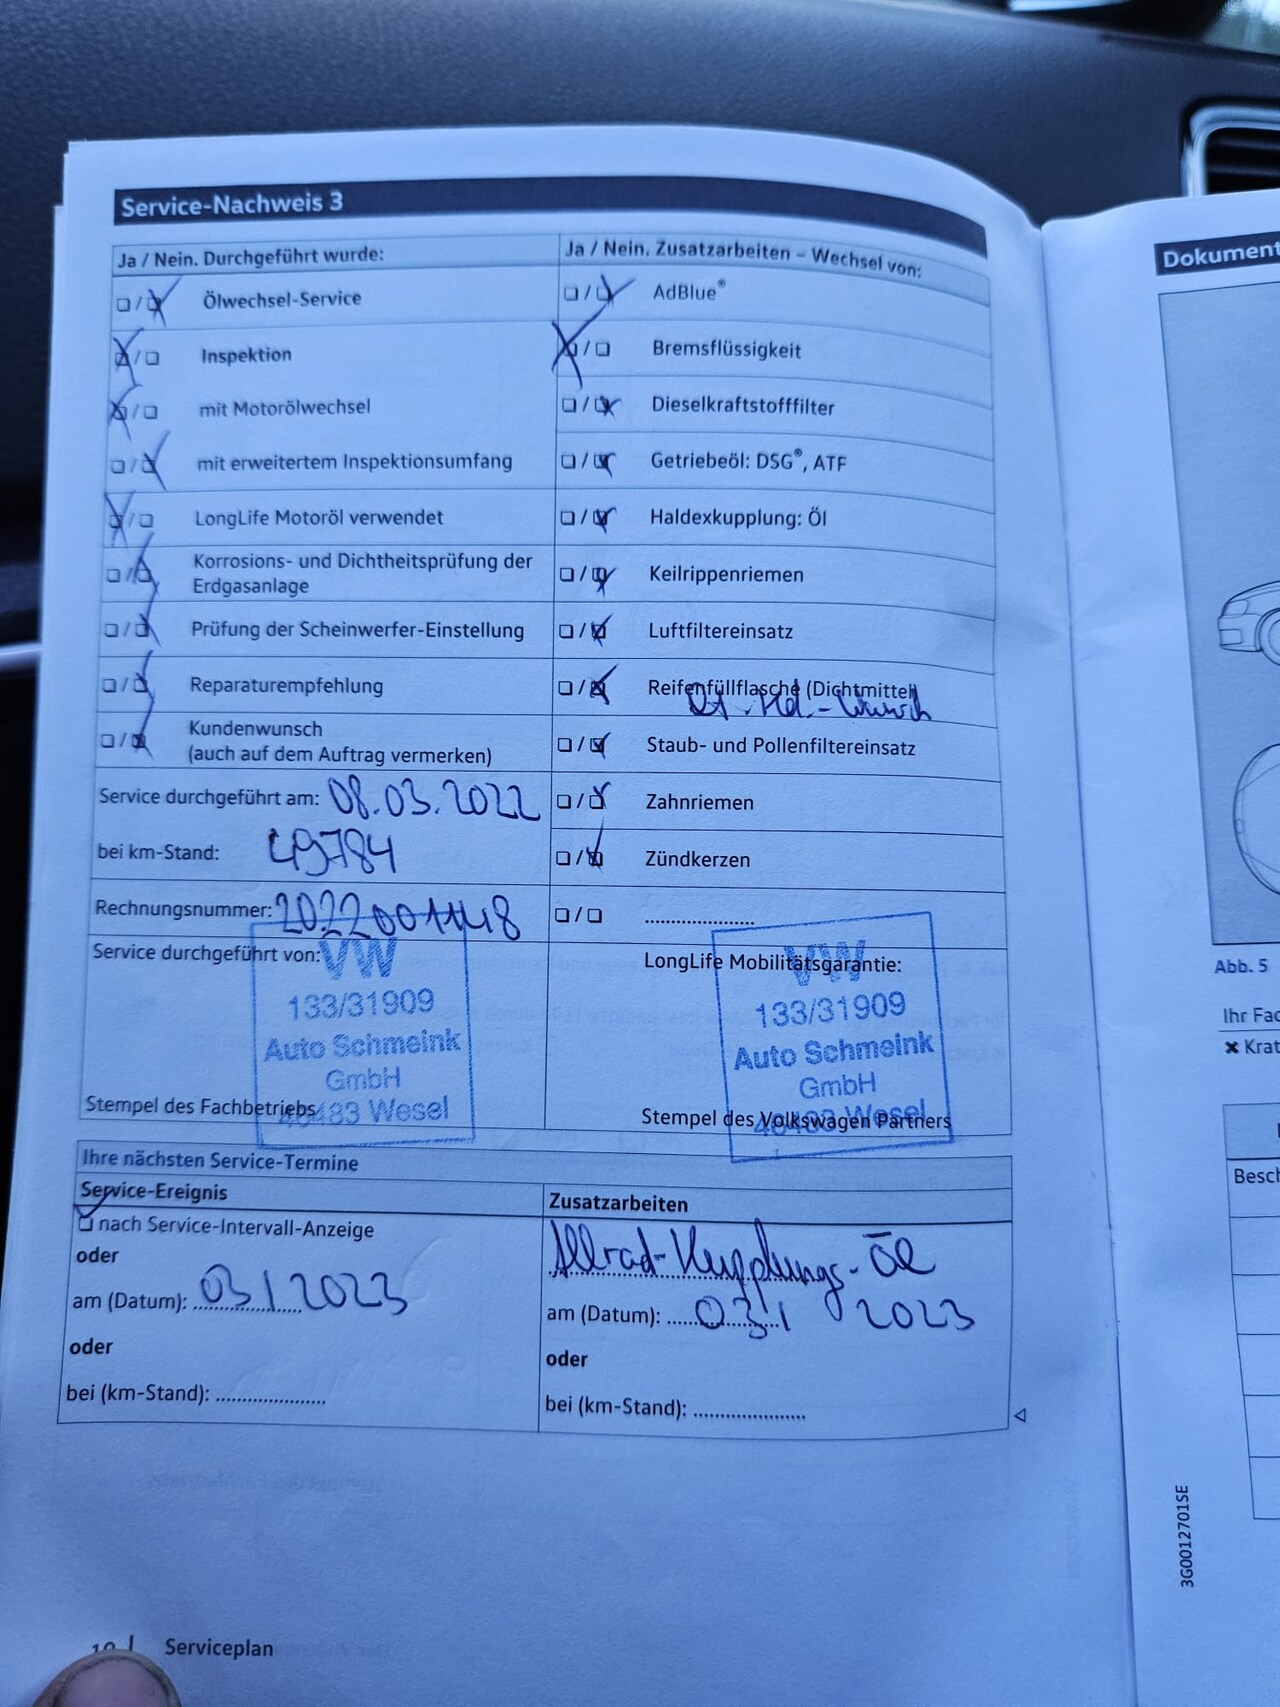 Service-Nachweis 3
Ja / Nein. Durchgeführt wurde:
❏ / ❏ Ölwechsel-Service
❏ / ❏ Inspektion
❏ / ❏ mit Motorölwechsel
❏ / ❏ mit erweitertem Inspektionsumfang
❏ / ❏ LongLife Motoröl verwendet
❏ / ❏ Korrosions- und Dichtheitsprüfung der
Erdgasanlage
❏ / ❏ Prüfung der Scheinwerfer-Einstellung
❏ / ❏ Reparaturempfehlung
❏ / ❏ Kundenwunsch
(auch auf dem Auftrag vermerken)
Service durchgeführt am: 08.03.2022
bei km-Stand: 49784
Rechnungsnummer: 2022001148
Service durchgeführt von:
VW
133/31909
Auto Schmeink
GmbH
46483 Wesel
Stempel des Fachbetriebs
Ja / Nein. Zusatzarbeiten – Wechsel von:
❏ / ❏ AdBlue®
❏ / ❏ Bremsflüssigkeit
❏ / ❏ Dieselkraftstofffilter
❏ / ❏ Getriebeöl: DSG®, ATF
❏ / ❏ Haldexkupplung: Öl
❏ / ❏ Keilrippenriemen
❏ / ❏ Luftfiltereinsatz
❏ / ❏ Reifenfüllflasche (Dichtmittel)
❏ / ❏ Staub- und Pollenfiltereinsatz
❏ / ❏ Zahnriemen
❏ / ❏ Zündkerzen
❏ / ❏ ......................
LongLife Mobilitätsgarantie:
VW
133/31909
Auto Schmeink
GmbH
46483 Wesel
Stempel des Volkswagen Partners
Ihre nächsten Service-Termine
Service-Ereignis
❏ nach Service-Intervall-Anzeige
oder
am (Datum): 03/2023
oder
bei (km-Stand): ......................
Zusatzarbeiten
Allrad-Kupplungs-Öl
am (Datum): 03/2023
oder
bei (km-Stand): ......................
Serviceplan
Dokument
Abb. 5
Ihr Fac
✖ Krat
Besch
3G0012701SE